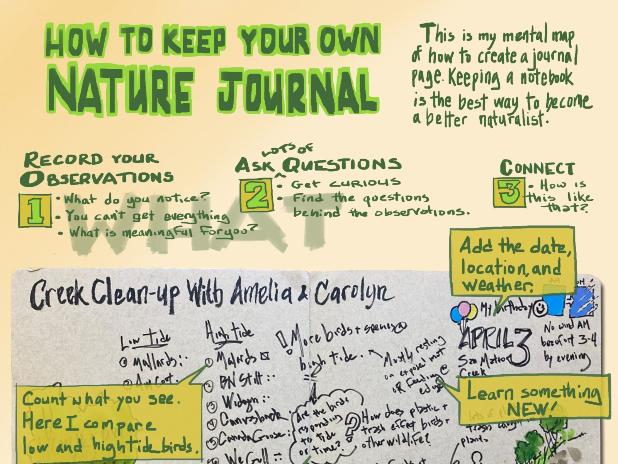 HOW TO KEEP YOUR OWN
NATURE JOURNAL
This is my mental map
of how to create a journal
page. Keeping a notebook
is the best way to become
a better naturalist.
RECORD YOUR
OBSERVATIONS
1
• What do you notice?
• You can't get everything
• What is meaningful for you?
LOTS OF
ASK ^ QUESTIONS
2
• Get curious
• Find the questions
behind the observations.
CONNECT
3
• How is
this like
that?
WHAT
Add the date,
location, and
weather.
Creek Clean-up With Amelia & Carolyn
My birthday
APRIL 3
San Mateo
Creek
No wind AM
by evening
Low Tide
① Mallards
High tide
① Mallards
② BN Stilt
③ Wideon
④ Canvasback
⑤ Canada Goose
⑥ We Gull
! More birds + species @
high tide.
Mostly resting
or feeding @
Are the birds
responding
to tide
or time?
? How does plastic +
trash affect birds +
other wildlife?
plant.
Count what you see.
Here I compare
low and high tide birds.
Learn something
NEW!